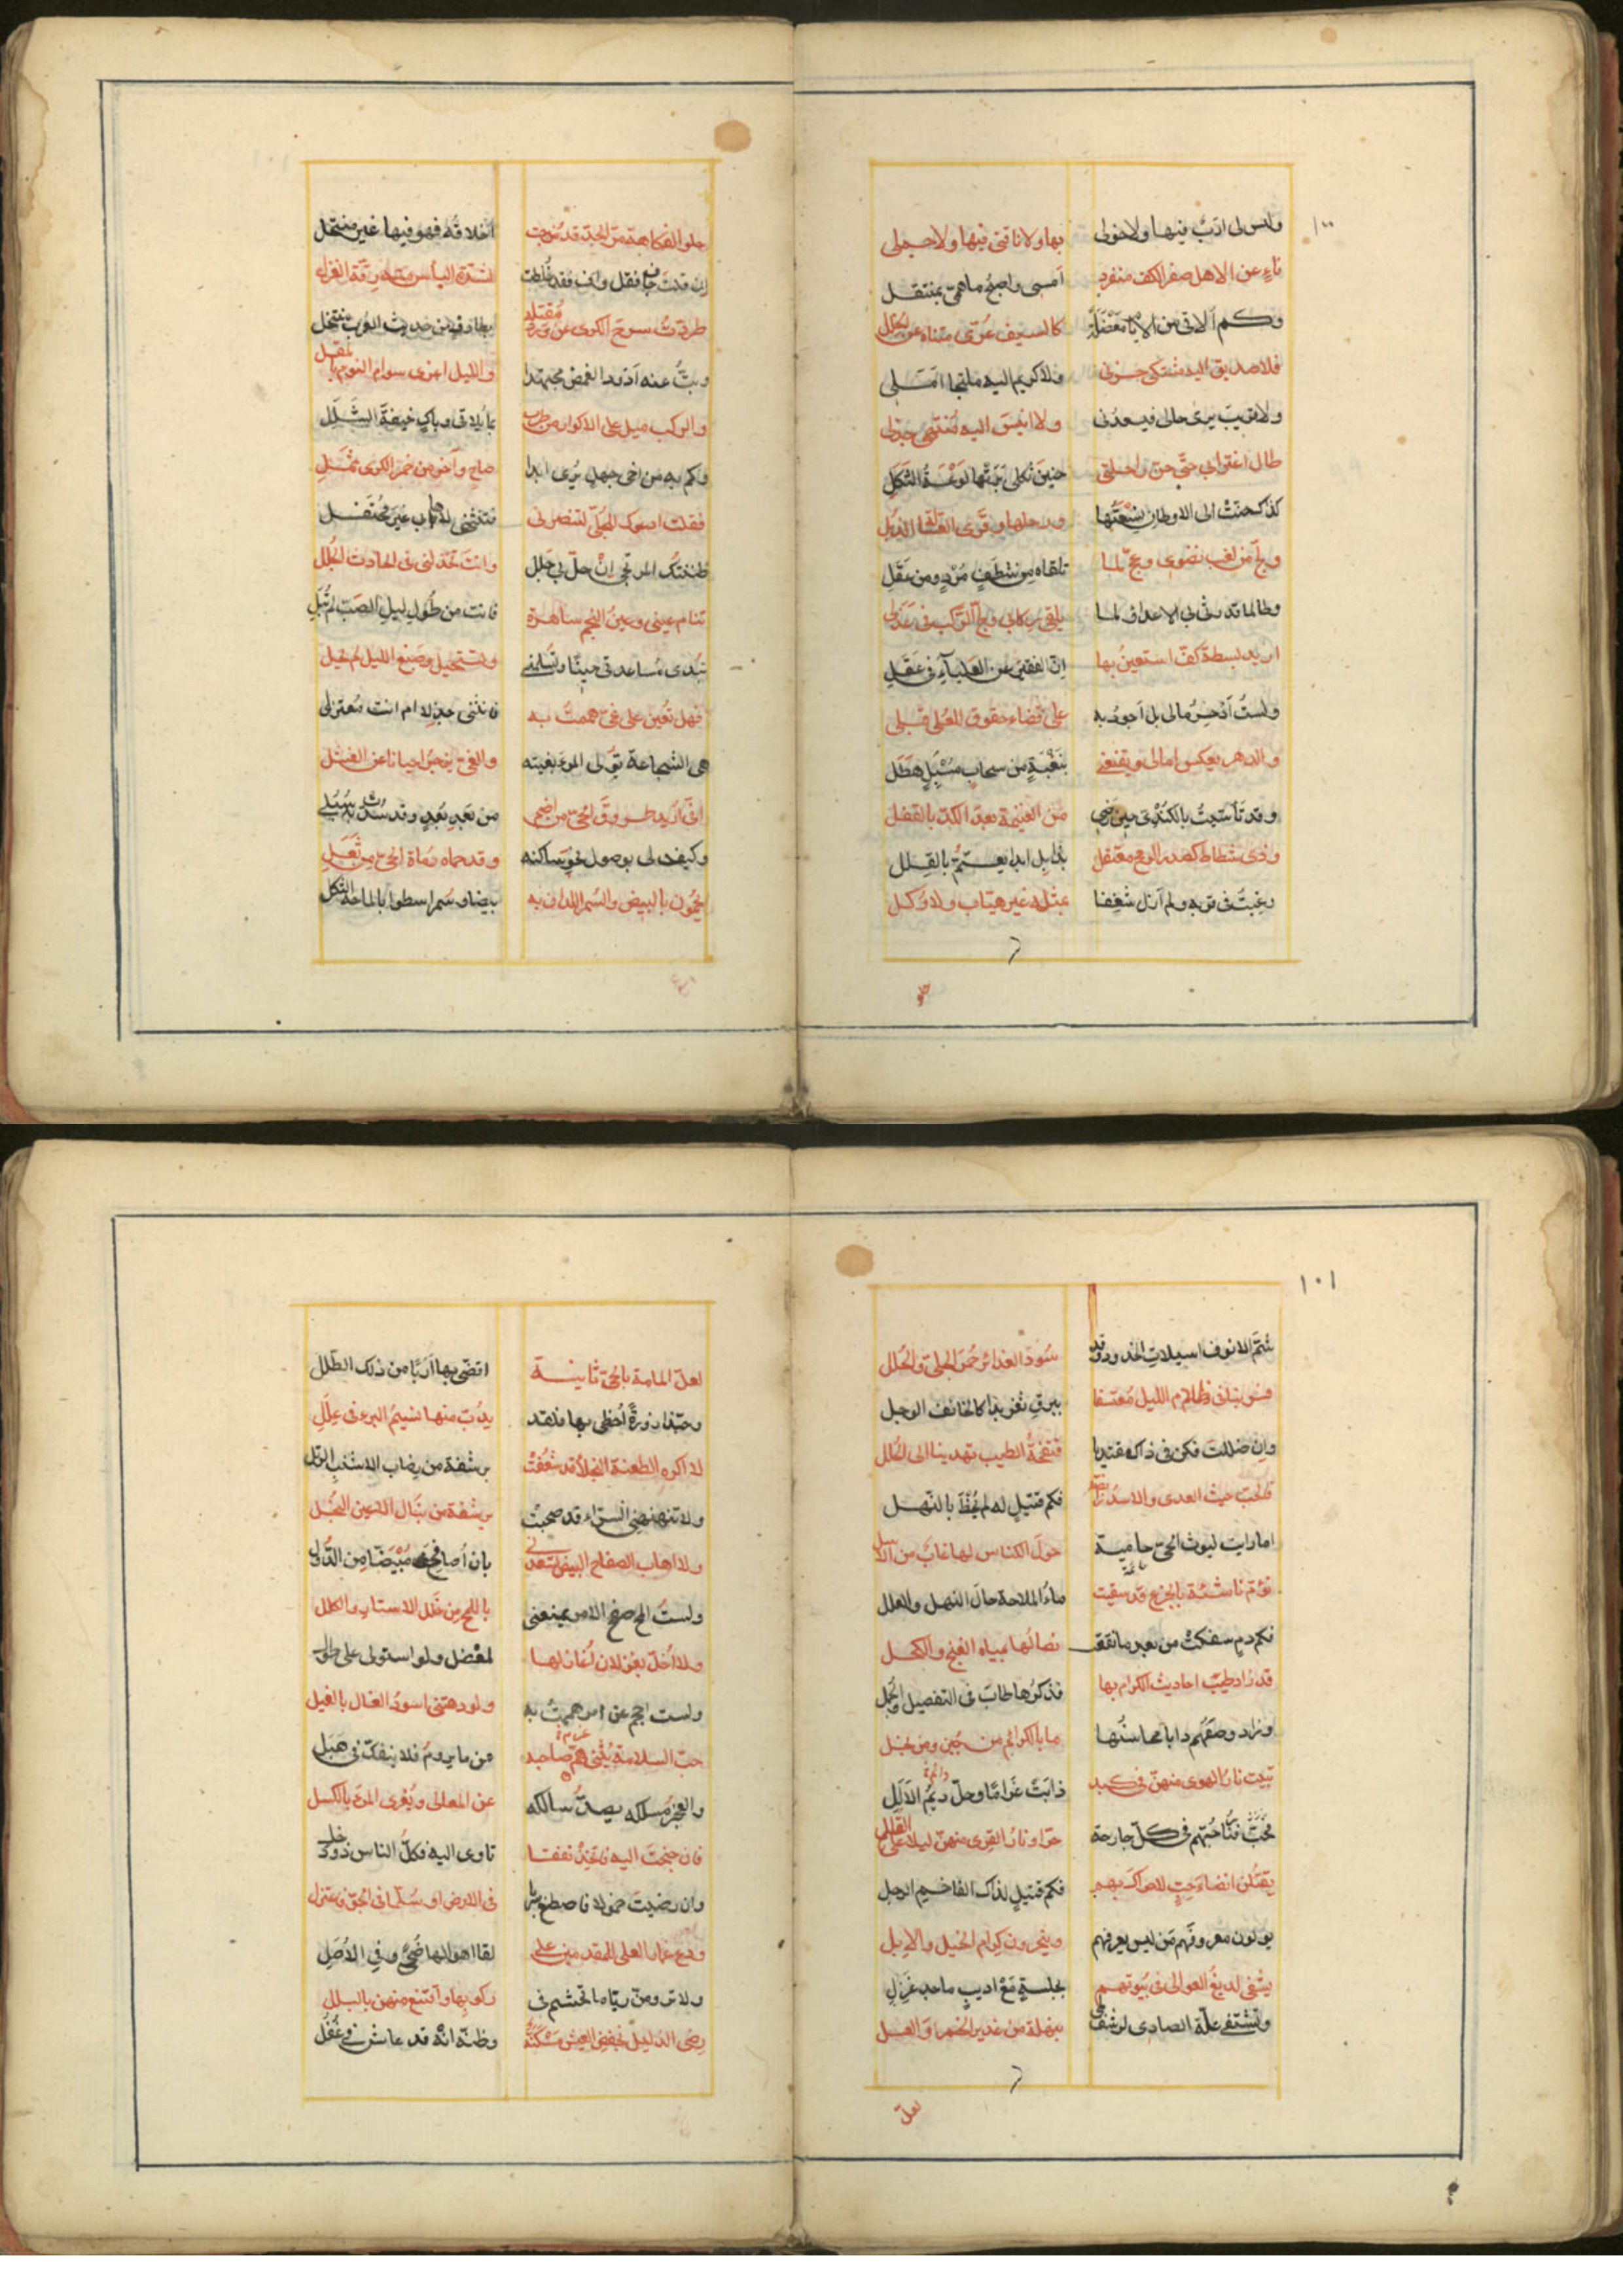 ١٠٠
وليس لى ادب فيها ولا خولى بها ولا ناقتى فيها ولا جملى
ناءٍ عن الاهل صفر الكف منفرد امسى واصبح ما همى بمنتقل
وكم الاقى من الايام كالسيف عرّى متناه عن الخلل
فلا صديق اليه مشتكى حزنى ولا كريم اليه ملتجا املى
ولا قريب يرى حالى فيسعدنى ولا انيس اليه منتهى جذلى
طال اغترابى حتى حنّ راحلتى حنين ثكلى بَرَتها لوعة الثكل
كذاك حنت الى الاوطان ورحلها وقرى العسّالة الذبل
وضجّ من لغب نضوى وعجّ لما تلقاه من شظف مُرْدٍ ومن عقل
وطالما قد رثى بى الاعداء لما يلقى ركابى ولجّ الركب فى عذلى
اريد بسطة كف استعين بها انّ الفقير عن العلياء فى عقل
ولست ادخر مالى بل اجود به على قضاء حقوق للعلى قبلى
والدهر يعكس امالى ويقنعنى من سحاب مُسْبَلٍ هطل
وقد تأسيت بالكندى حين رضى من الغنيمة بعد الكدّ بالقفل
وذى شطاط كصدر الرمح معتقل بذابل ابدا يعتمّ بالقلل
رغبت فى قربه ولم ازل شغفا بمثله غير هيّاب ولا وكل
حلو
حلو الفكاهة مرّ الجدّ قد مزجت اخلاقه فهو فيها غير منتحل
بشدة البأس منه رقة الغزل
طردت سرح الكرى عن ورد مقلته
وبتُّ عنه اذود الغمض مجتهدا والليل اغرى سوام النوم بالمقل
والركب ميل على الاكوار من طرب
وكم به من اخى جهل يرى ابدا صاحٍ وآخر من خمر الكرى ثمل
فقلت ادعوك للجلّى لتنصرنى غير محتفل
ظننتك المرتجى ان حلّ بى جلل وانت تخذلنى فى الحادث الجلل
تنام عينى وعين النجم ساهرة فانت من طول ليل الصبّ لم تُبَلِ
تبدى مساعدتى حينًا وتسلمنى وتستحيل وصبغ الليل لم يحل
فهل تعين على غىّ هممت به فانثنى جذلا ام انت معتزلى
هى الشجاعة تولى المرء بغيته والغىّ يزجر احيانا عن الفشل
انى اريد طروق الحىّ من اضم من بعد بُعدٍ وقد سدّت به سبلى
وكيف لى بوصول نحو ساكنه وقد حماه رماة الحىّ من ثعل
يحمون بالبيض والسمر اللدان به بيضا وسمرا سطوا بالماحة الشكل
١٠١
شمّ الانوف اسيلات الخدود وقد سود الغدائر حمر الحلى والحلل
فسر بنا فى ظلام الليل معتسفا ببرق ثغر بدا كالخائف الوجل
وان ضللت فكن فى ذاك مقتديا فنفحة الطيب تهدينا الى الحلل
فالحب حيث العدى والاسد رابضة فكم قتيل له لم يحظ بالنهل
اما رايت ليوث الحىّ حامية حول الكناس لها غاب من الاسل
نؤم ناشئة بالجزع قد سقيت ماء الملاحة حال النهل والعلل
فكم دم سفكت من بعد ما نقعت نصالها بمياه الغنج والكحل
قد زاد طيب احاديث الكرام بها فذكرها طاب فى التفصيل والجمل
وزاد وصفهم دابا محاسنها ما بالكرائم من جبن ومن بخل
تبيت نار الهوى منهن فى كبد ذابت غراما
فى كلّ جارحة حرّا ونار القرى منهم ليلا على القلل
يقتلن انضاء حبّ لا حراك بهم فكم قتيل لذاك الفاحم الرجل
يولون معروفهم من ليس يعرفهم وينحرون كرام الخيل والابل
يشفى لديغ العوالى فى بيوتهم بجلسة مع اديب ماجد غزل
وتشتفى علة الصادى لرشف بنهلة من غدير الخمر والعسل
لعلّ
لعلّ المامة بالحىّ ثانية اقضى بها اربا من ذلك الطلل
وحبّذا زورة احظى بها فلقد يدبّ منها نسيم البرء فى علل
لا اكره الطعنة النجلا قد شغفت برشفة من رضاب الاشنب الرتل
ولا تنهنهنى السرّاء قد صحبت برشقة من نبال الاعين النجل
ولا اهاب الصفاح البيض تسعدنى بان اصافح مبيضّا من الدول
ولست الحّ صفح الامر يمنعنى باللمح من خلل الاستار والكلل
ولا اخلّ بغزلان اغازلها لمعضل ولو استولى على
ولست احجم عن امر هممت به ولو دهتنى اسود الغال بالغيل
حب السلامة يثنى همّ صاحبه عن ما يروم فلا ينفكّ فى هبل
والعجز مسلكه يصدّ سالكه عن المعالى ويغرى المرء بالكسل
فان جنحت اليه فاتخذ نفقا تاوى اليه فكلّ الناس ذو دخل
وان رضيت خمولا فاصطبر فى الارض او سلّما فى الجوّ فاعتزل
ودع غمار العلى للمقدمين على لقا اهوالها ضحىً وفى الاصل
ولا ترومنّ ريّا ما تحشم فى ركوبها واقتنع منهن بالبلل
رضى الذليل بخفض العيش مسكنة وظنه انه قد عاش فى غفل